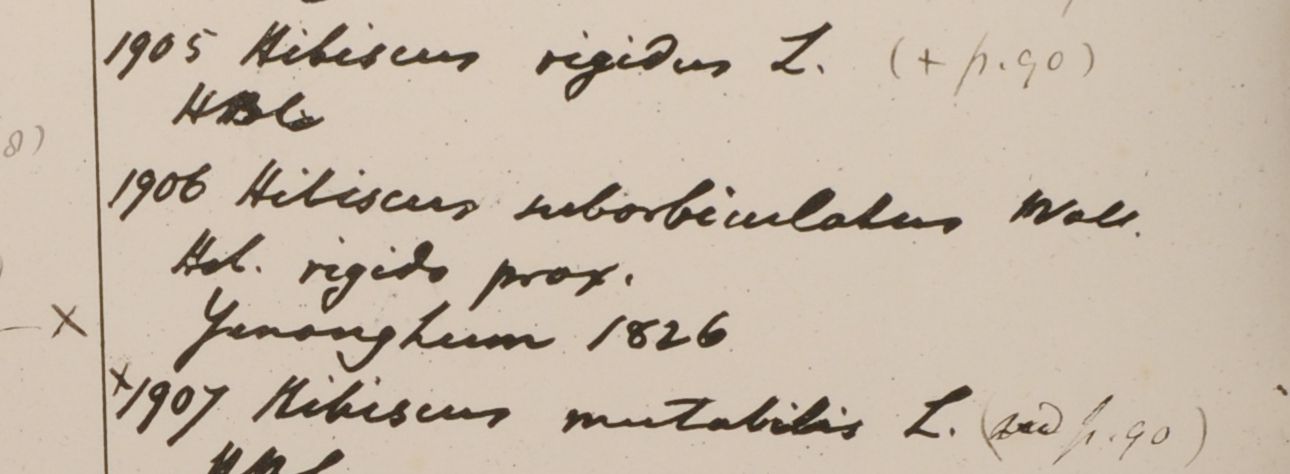 1905 Hibiscus rigidus L. (+ p. 90)
8)
1906 Hibiscus suborbiculatus Wall.
Hib. rigido prox.
Yenanghuum 1826
×
×1907 Hibiscus mutabilis L. ( p. 90)